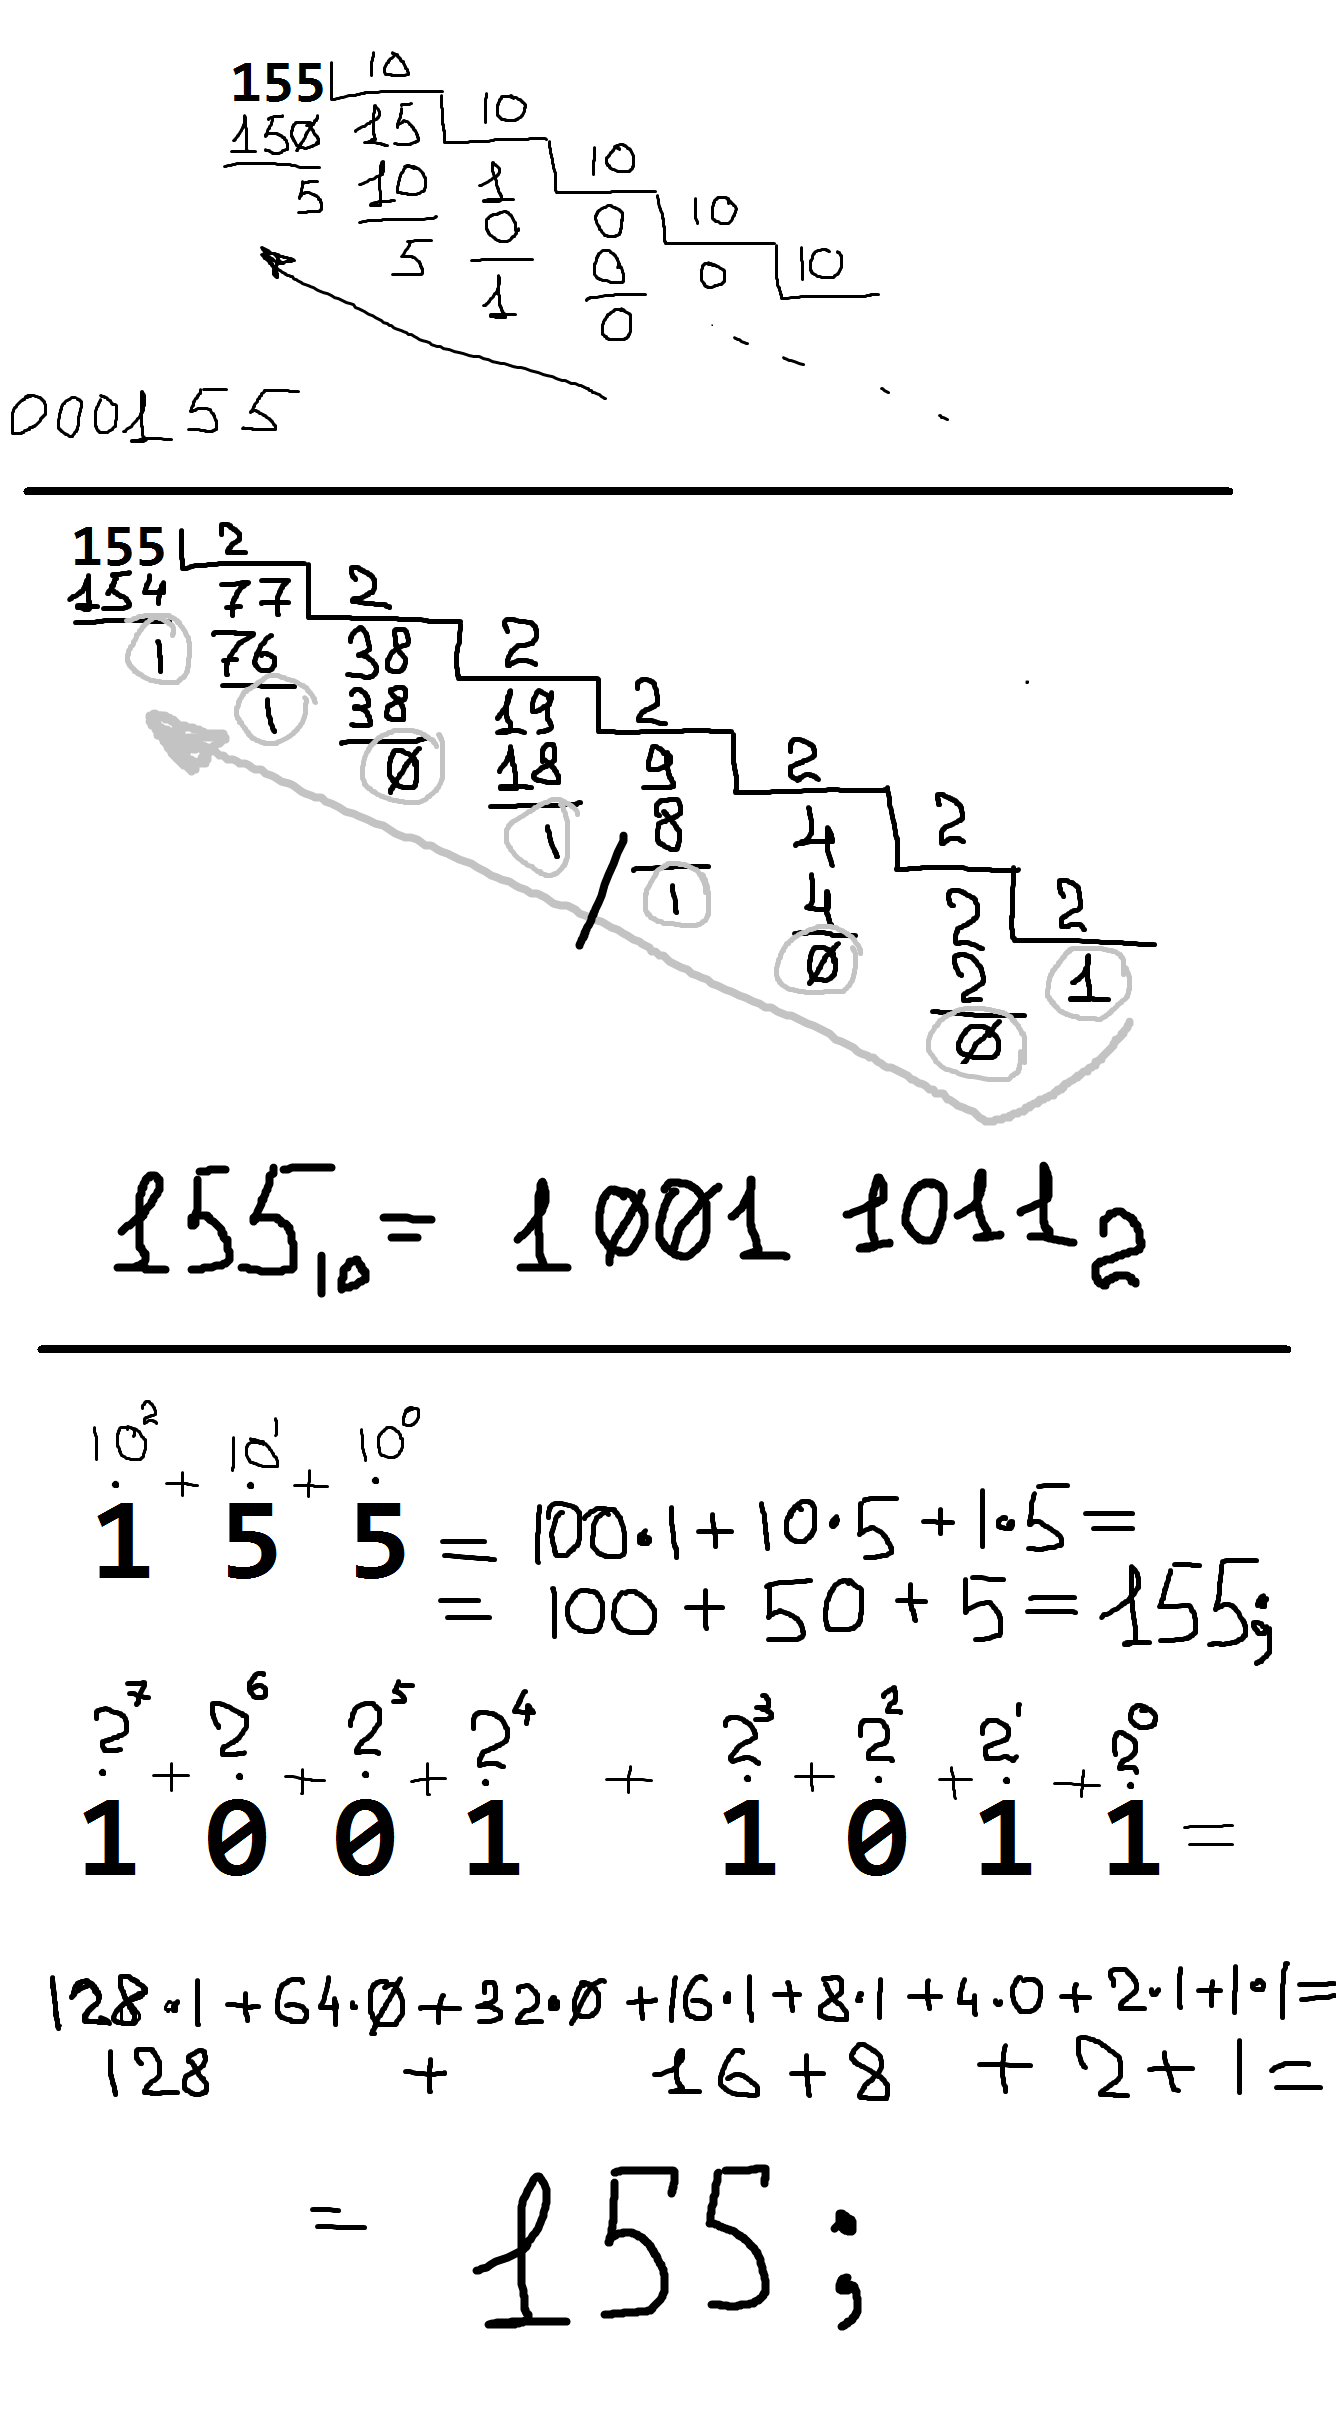 155 10
150 15 10
5 10 1 10
5 0 0 10
1 0 0 10
0
000155
155 2
154 77 2
1 76 38 2
1 38 19 2
0 18 9 2
1 8 4 2
1 4 2 2
0 2 1
0
155₁₀ = 1001 1011₂
10² 10¹ 10⁰
· + · + ·
1 5 5 = 100·1 + 10·5 + 1·5 =
= 100 + 50 + 5 = 155;
2⁷ 2⁶ 2⁵ 2⁴ 2³ 2² 2¹ 2⁰
· + · + · + · + · + · + · + ·
1 0 0 1 1 0 1 1 =
128·1 + 64·0 + 32·0 + 16·1 + 8·1 + 4·0 + 2·1 + 1·1 =
128 + 16 + 8 + 2 + 1 =
= 155;